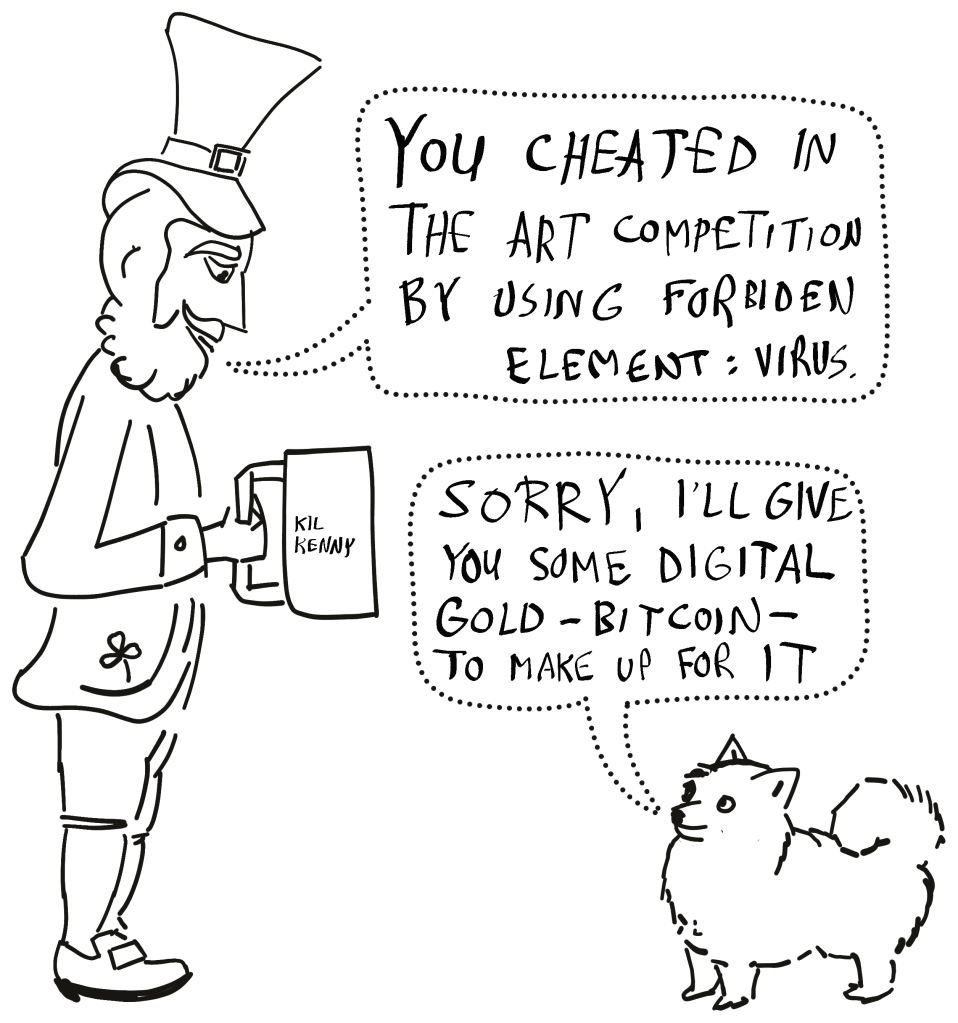 YOU CHEATED IN
THE ART COMPETITION
BY USING FORBIDEN
ELEMENT : VIRUS.
KIL
KENNY
SORRY, I'LL GIVE
YOU SOME DIGITAL
GOLD - BITCOIN -
TO MAKE UP FOR IT